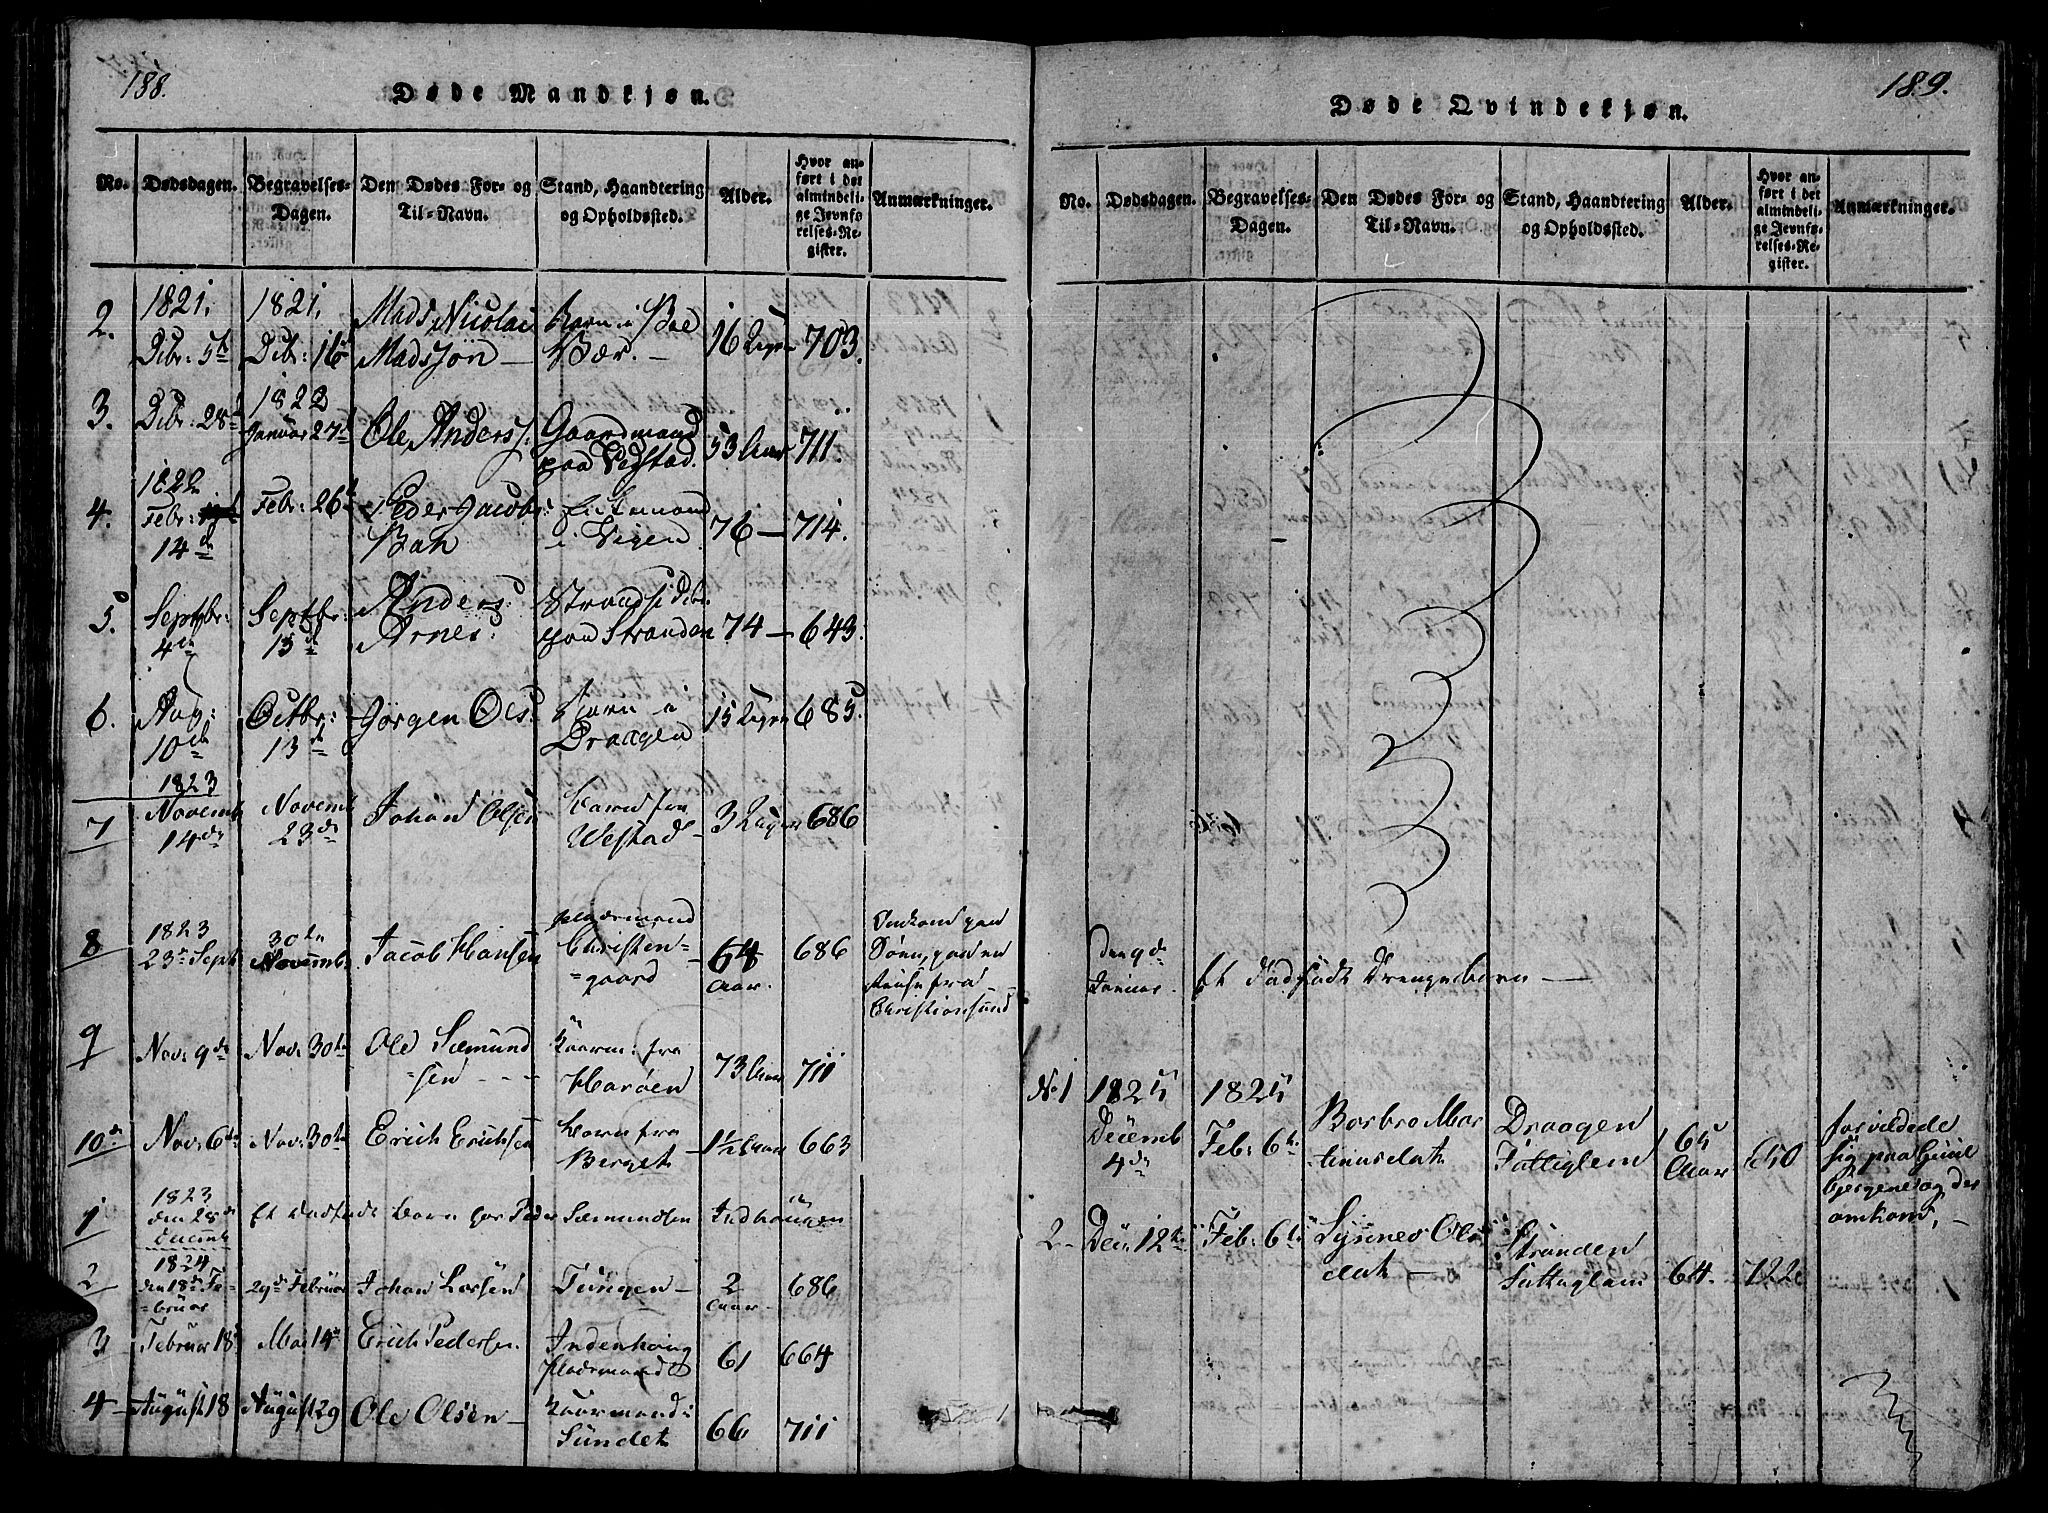 188.
Døde Mandkjøn.
No. Dødsdagen. Begravelses-Dagen. Den Dødes For- og Til-Navn. Stand, Haandtering og Opholdssted. Alder. Hvor anført i det almindelige Jevnførelses-Register. Anmærkninger.
2. 1821. Dcbr: 5te 1821. Dcbr: 16 Mads Nicolai Madssøn Barn i Bær. 16 Dage 703.
3. Dcbr: 28 1822 Januar 27 Ole Anders. Gaardmand paa Vestad. 53 Aar 711.
4. 1822 Febr: 14de Febr: 26 Peder Jacobs. i Vigen 76 — 714.
5. Septbr: 4de Septbr: 13d Anders Arnes. Strandsidder paa Stranden 74 — 643.
6. Aug: 10de Octbr: 13de Jørgen Ols. Barn i Draagen 15 Dage 685.
7 1823 Novemb 14de Novemb 23de Johan Olsen Barn fra Westad 3 Dage 686
8 1823 23de Septb 30te Novemb. Jacob Hansen Pladsmand Christengaard 64 Aar. 686 Omkom paa Søen, paa en Reise fra Christiansund
9 Nov: 9de Nov: 30te Ole Sæmundsen fra Harøen 73 Aar 711
10de Nov: 6te Nov: 30te Erich Erichsen Barn fra Berget 1½ Aar 663
1 1823 den 28de Decemb Et dødfødt Barn for Peder Sæmundsen Indhaugen
2 1824 den 18de Februar 29de Februar Johan Larsen Tangen 2 Aar 686
3 Februar 18 Mai 14 Erich Pedersen. Indenhaug Pladsmand 61 664
4 August 18 August 29 Ole Olsen Sundet 66 711
189.
Døde Qvindekjøn.
No. Dødsdagen. Begravelses-Dagen. Den Dødes For- og Til-Navn. Stand, Haandtering og Opholdssted. Alder. Hvor anført i det almindelige Jevnførelses-Register. Anmærkninger.
den 9de Januar. Et Dødfødt Drengebarn
No 1 1825 Decemb 4de 1825 Feb: 6te Barbro Martinusdatr Draagen Fattiglem 65 Aar forvildede sig paa bjergene og der omkom,
2 Dec: 12te Feb: 6te Olsdatr Stranden Fattiglem 64. 722